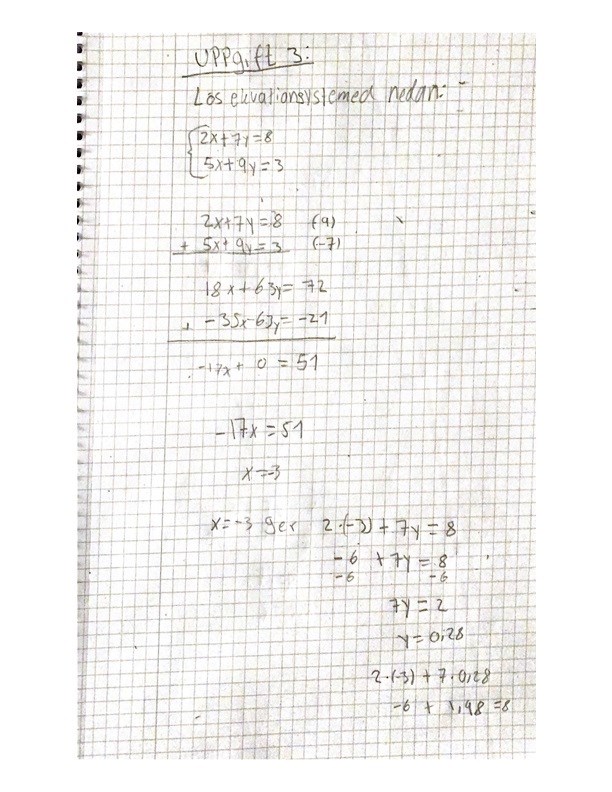 UPPgift 3:
Lös ekvationsystemed nedan:
2x+7y=8
5x+9y=3
2x+7y=8 (9)
+ 5x+9y=3 (-7)
18x+63y=72
+ -35x-63y=-21
-17x+ 0 = 51
-17x=51
x=-3
x=-3 ger 2·(-3)+7y=8
-6 +7y=8
-6 -6
7y=2
y=0,28
2·(-3)+7·0,28
-6 + 1,98 =8